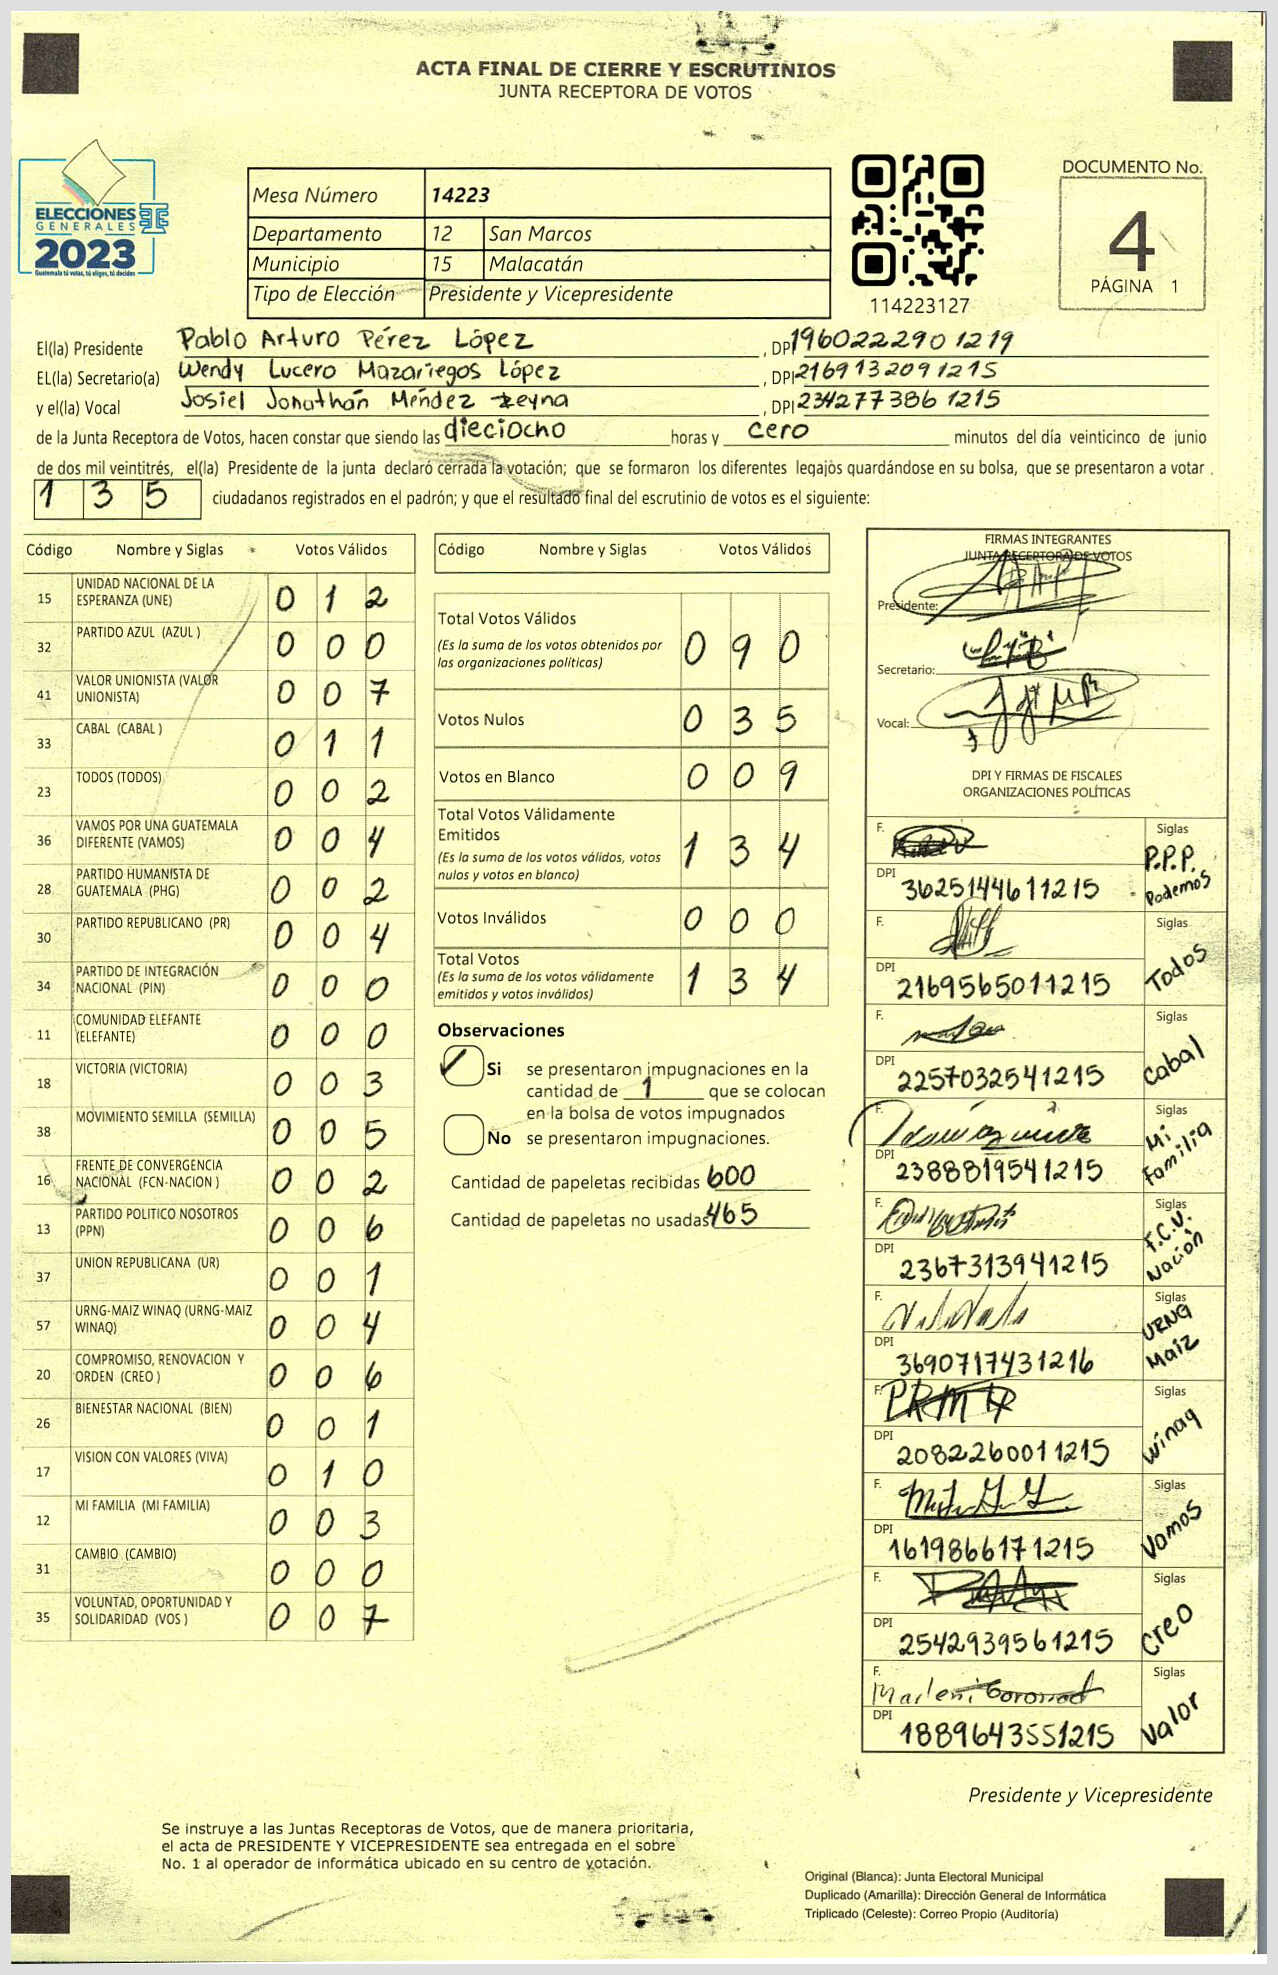 ACTA FINAL DE CIERRE Y ESCRUTINIOS
JUNTA RECEPTORA DE VOTOS
ELECCIONES
GENERALES
2023
Guatemala tú votas, tú eliges, tú decides
Mesa Número 14223
Departamento 12 San Marcos
Municipio 15 Malacatán
Tipo de Elección Presidente y Vicepresidente
114223127
DOCUMENTO No.
4
PÁGINA 1
El(la) Presidente Pablo Arturo Pérez López , DPI 1960222901219
EL(la) Secretario(a) Wendy Lucero Mazariegos López , DPI 2169132091215
y el(la) Vocal Josiel Jonathán Méndez Reyna , DPI 2342773861215
de la Junta Receptora de Votos, hacen constar que siendo las dieciocho horas y cero minutos del día veinticinco de junio
de dos mil veintitrés, el(la) Presidente de la junta declaró cerrada la votación; que se formaron los diferentes legajos guardándose en su bolsa, que se presentaron a votar
135 ciudadanos registrados en el padrón; y que el resultado final del escrutinio de votos es el siguiente:
Código Nombre y Siglas Votos Válidos
15 UNIDAD NACIONAL DE LA ESPERANZA (UNE) 0 1 2
32 PARTIDO AZUL (AZUL ) 0 0 0
41 VALOR UNIONISTA (VALOR UNIONISTA) 0 0 7
33 CABAL (CABAL ) 0 1 1
23 TODOS (TODOS) 0 0 2
36 VAMOS POR UNA GUATEMALA DIFERENTE (VAMOS) 0 0 4
28 PARTIDO HUMANISTA DE GUATEMALA (PHG) 0 0 2
30 PARTIDO REPUBLICANO (PR) 0 0 4
34 PARTIDO DE INTEGRACIÓN NACIONAL (PIN) 0 0 0
11 COMUNIDAD ELEFANTE (ELEFANTE) 0 0 0
18 VICTORIA (VICTORIA) 0 0 3
38 MOVIMIENTO SEMILLA (SEMILLA) 0 0 5
16 FRENTE DE CONVERGENCIA NACIONAL (FCN-NACION ) 0 0 2
13 PARTIDO POLITICO NOSOTROS (PPN) 0 0 6
37 UNION REPUBLICANA (UR) 0 0 1
57 URNG-MAIZ WINAQ (URNG-MAIZ WINAQ) 0 0 4
20 COMPROMISO, RENOVACION Y ORDEN (CREO ) 0 0 6
26 BIENESTAR NACIONAL (BIEN) 0 0 1
17 VISION CON VALORES (VIVA) 0 1 0
12 MI FAMILIA (MI FAMILIA) 0 0 3
31 CAMBIO (CAMBIO) 0 0 0
35 VOLUNTAD, OPORTUNIDAD Y SOLIDARIDAD (VOS ) 0 0 7
Código Nombre y Siglas Votos Válidos
Total Votos Válidos
(Es la suma de los votos obtenidos por las organizaciones políticas) 0 9 0
Votos Nulos 0 3 5
Votos en Blanco 0 0 9
Total Votos Válidamente Emitidos
(Es la suma de los votos válidos, votos nulos y votos en blanco) 1 3 4
Votos Inválidos 0 0 0
Total Votos
(Es la suma de los votos válidamente emitidos y votos inválidos) 1 3 4
Observaciones
Si se presentaron impugnaciones en la
cantidad de 1 que se colocan
en la bolsa de votos impugnados
No se presentaron impugnaciones.
Cantidad de papeletas recibidas 600
Cantidad de papeletas no usadas 465
FIRMAS INTEGRANTES
JUNTA RECEPTORA DE VOTOS
Presidente:
Secretario:
Vocal:
DPI Y FIRMAS DE FISCALES
ORGANIZACIONES POLÍTICAS
F. Siglas P.P.P. Podemos
DPI 3625144611215
F. Siglas Todos
DPI 2169565011215
F. Siglas Cabal
DPI 2257032541215
F. Siglas Mi Familia
DPI 2388819541215
F. Siglas F.C.N. Nación
DPI 2367313941215
F. Siglas URNG Maiz
DPI 3690717431216
F. Siglas Winaq
DPI 2082260011215
F. Siglas Vamos
DPI 1619866171215
F. Siglas Creo
DPI 2542939561215
F. Marleni Siglas Valor
DPI 1889643551215
Presidente y Vicepresidente
Se instruye a las Juntas Receptoras de Votos, que de manera prioritaria,
el acta de PRESIDENTE Y VICEPRESIDENTE sea entregada en el sobre
No. 1 al operador de informática ubicado en su centro de votación.
Original (Blanca): Junta Electoral Municipal
Duplicado (Amarilla): Dirección General de Informática
Triplicado (Celeste): Correo Propio (Auditoría)